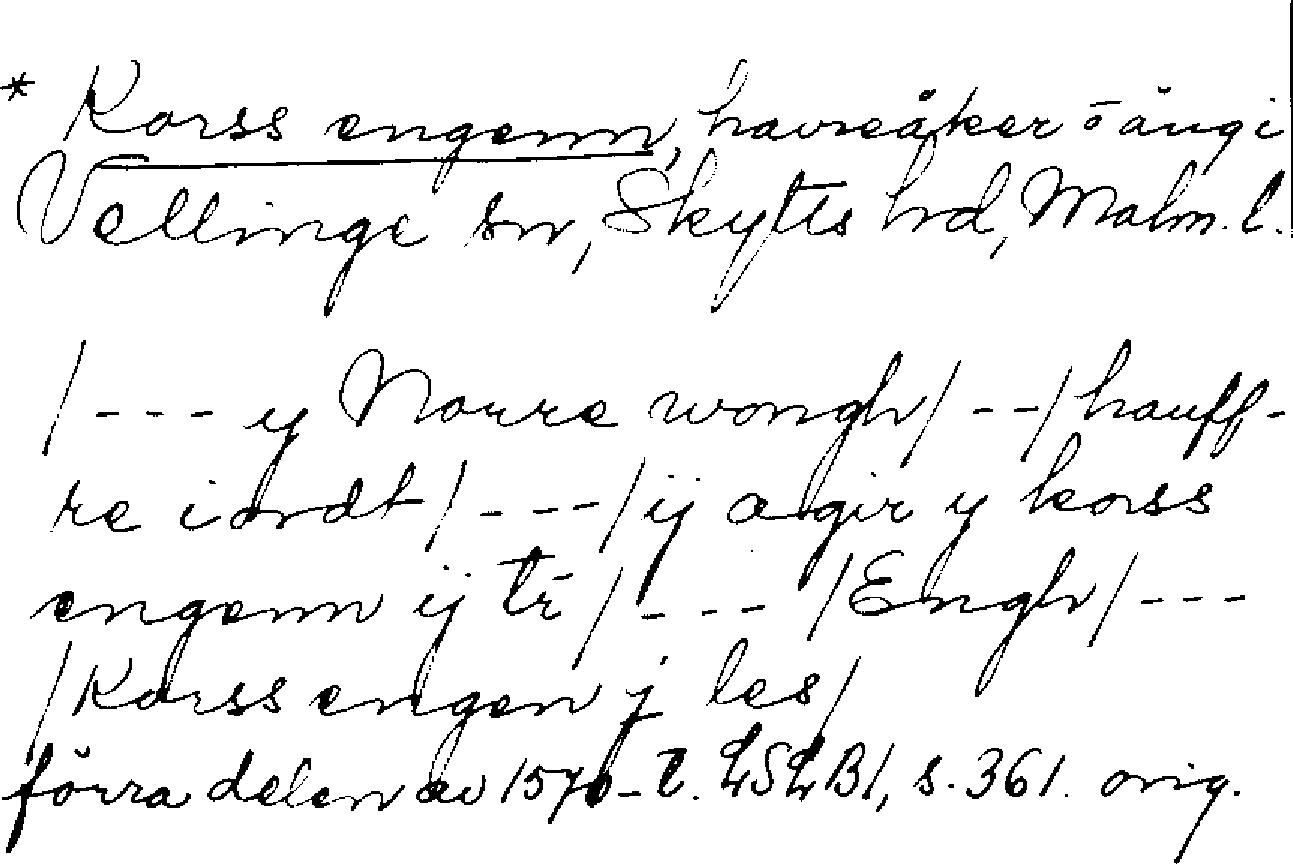 * Korss engenn, havreåker o äng i
Vellinge sn, Skytts hd, Malm. l.
/--- y Norre wongh/--/hauff-
re iordt/---/ij agir y korss
engenn ij tr̄/--- /Engh/---
/Korss engen j les/
förra delen av 1570-t. LSLB1, s. 361. orig.